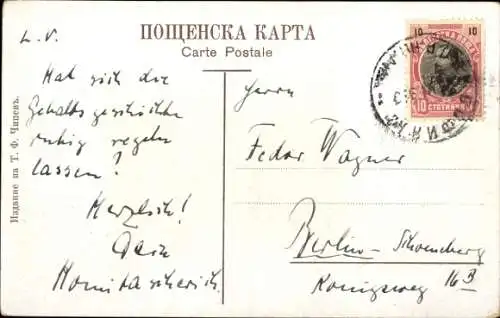 ПОЩЕНСКА КАРТА
Carte Postale
L. V.
Hat sich die
Gehaltsgeschichte
ruhig regeln
lassen?
Herzlich!
Dein
Издание на Т. Ф. Чипевъ.
Herrn
Fedor Wagner
Berlin-Schoeneberg
Königsweg 16 B
10 10
10 СТОТИНКИ
СОФИЯ